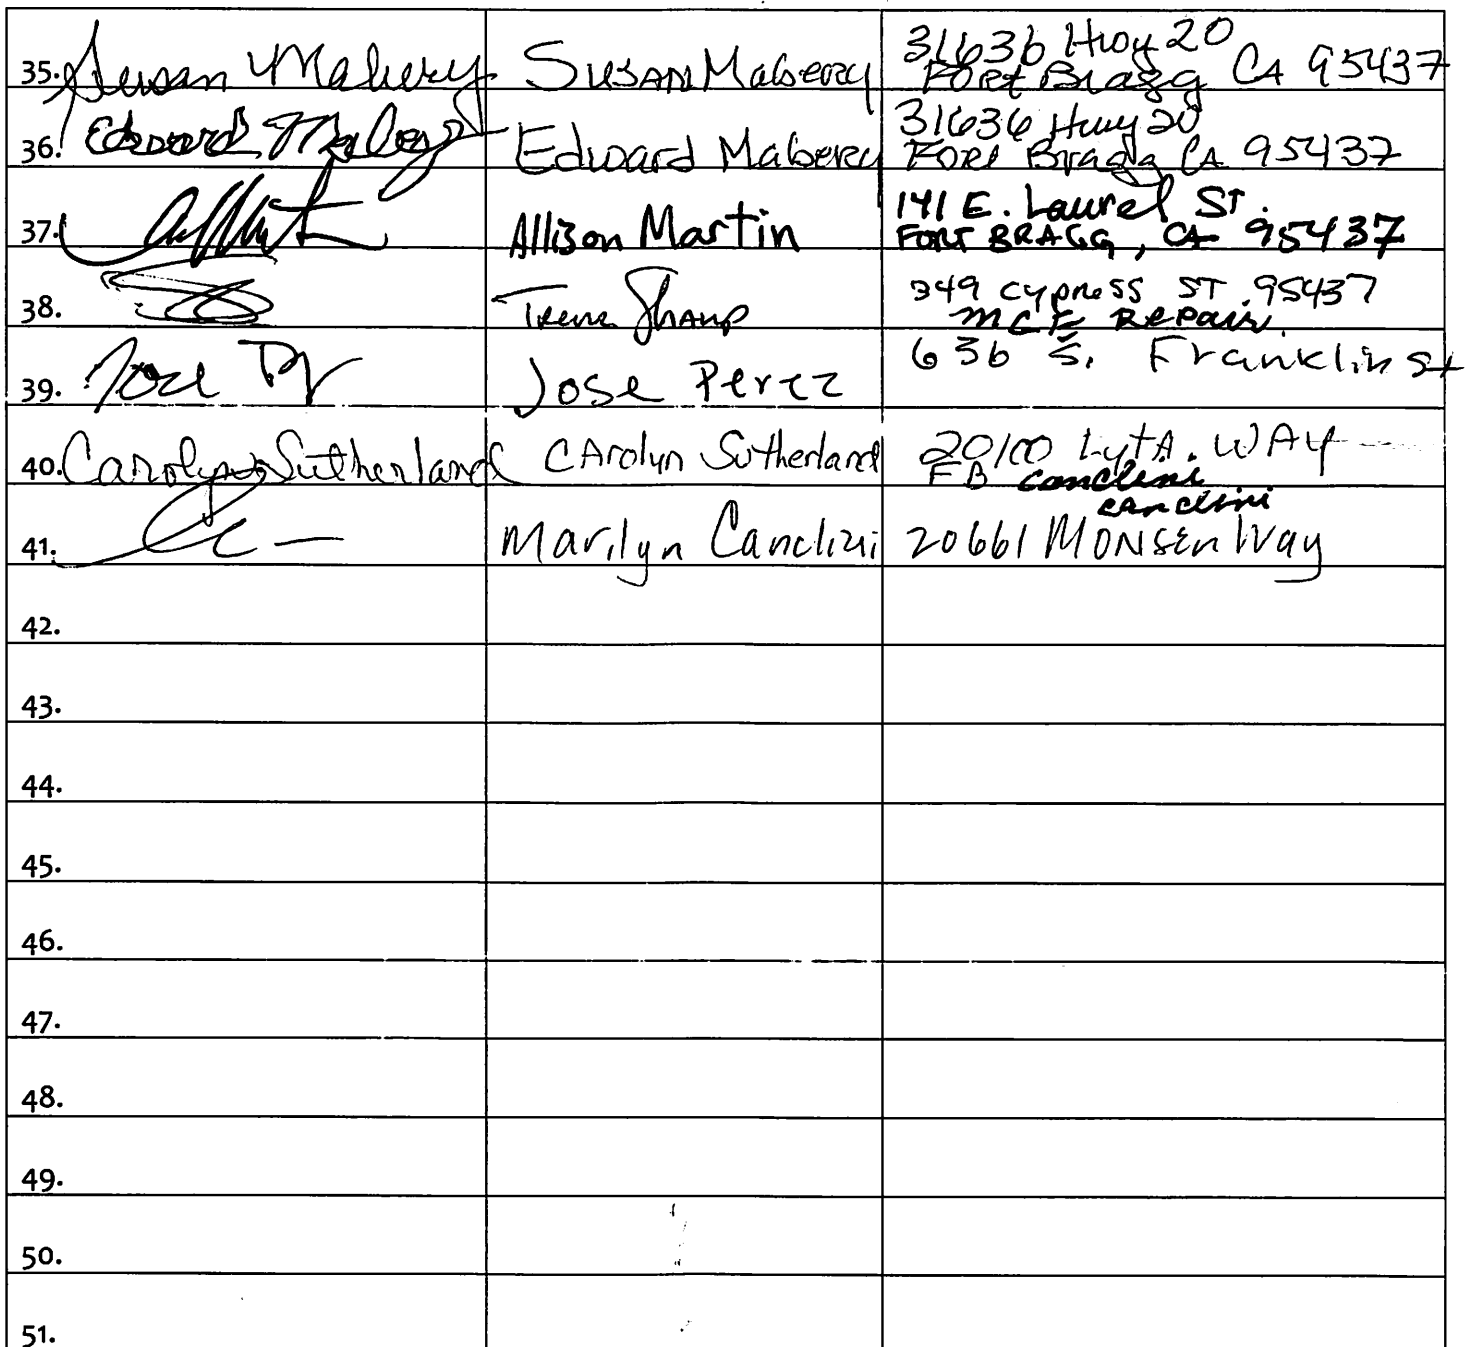 35. Susan Mabery Susan Mabery 31636 Hwy 20
Fort Bragg CA 95437
36. Edward Mabery Edward Mabery 31636 Hwy 20
Fort Bragg CA 95437
37. Allison Martin 141 E. Laurel St.
FORT BRAGG, CA 95437
38. Sharp 349 cypress ST. 95437
MCF Repair
39. Jose Jose Perez 636 S. Franklin st
40. Carolyn Sutherland CArolyn Sutherland 20100 WAY
FB canclini
canclini
41. Marilyn Canclini 20661 MONSEn Way
42.
43.
44.
45.
46.
47.
48.
49.
50.
51.